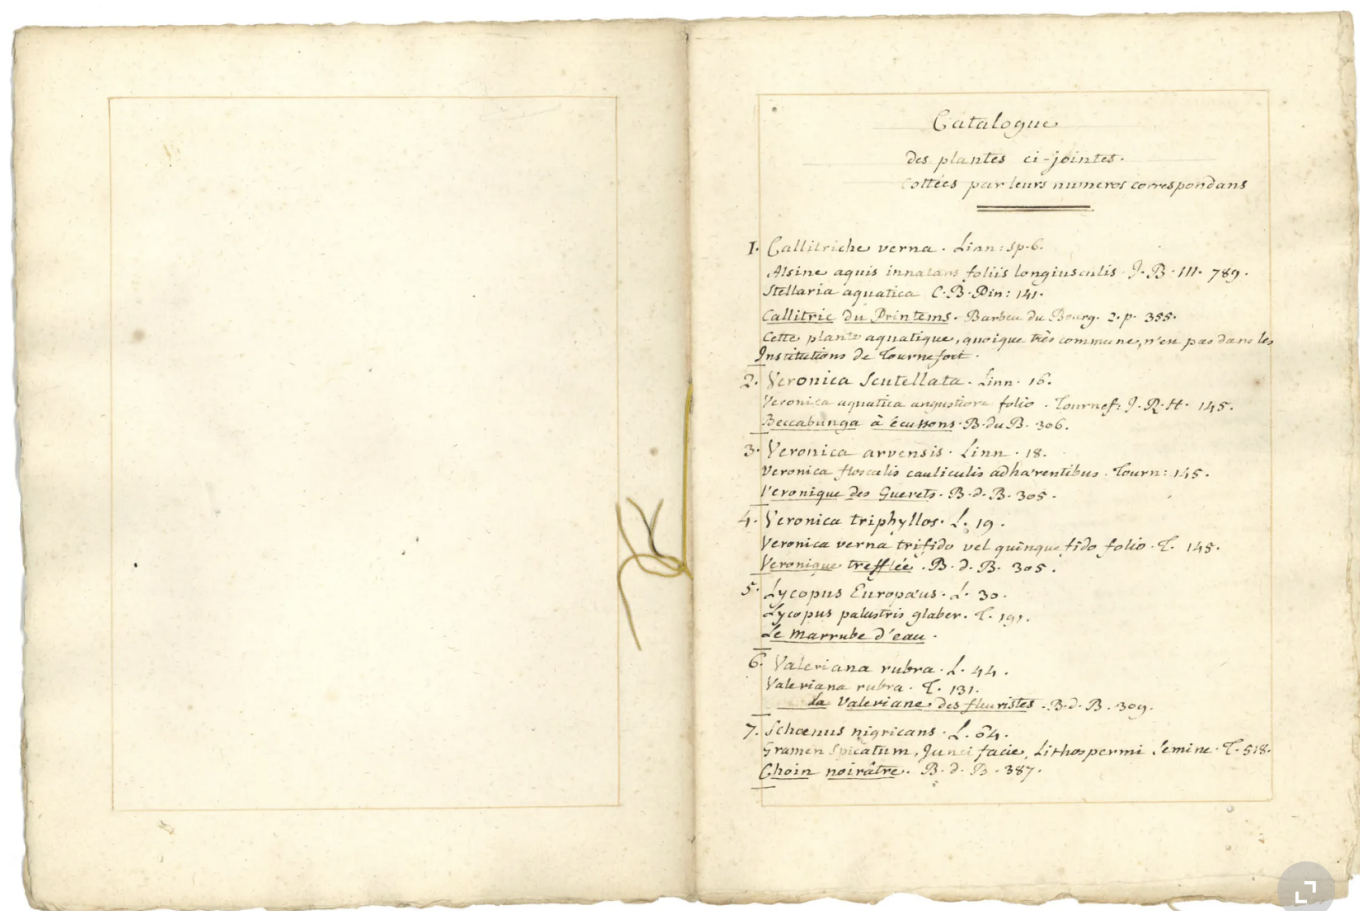 Catalogue
des plantes ci-jointes.
Cottées par leurs numeros correspondans
1. Callitriche verna. Linn: sp. 6.
Alsine aquis innatans foliis longiusculis. J. B. III. 789.
Stellaria aquatica C. B. Pin: 141.
Callitric du Printems. Barbeu du Bourg. 2. p. 355.
Cette plante aquatique, quoique très commune, n'est pas dans les
Institutions de Tournefort.
2. Veronica Scutellata. Linn. 16.
Veronica aquatica angustiore folio. Tournef: J. R. H. 145.
Beccabunga à écussons. B. du B. 306.
3. Veronica arvensis. Linn. 18.
Veronica flosculis cauliculis adhærentibus. Tourn: 145.
Veronique des Guerets. B. d. B. 305.
4. Veronica triphyllos. L. 19.
Veronica verna trifido vel quinquefido folio. T. 145.
Veronique trefflée. B. d. B. 305.
5. Lycopus Europæus. L. 30.
Lycopus palustris glaber. T. 191.
Le Marrube d'eau.
6. Valeriana rubra. L. 44.
Valeriana rubra. T. 131.
La Valeriane des fleuristes. B. d. B. 309.
7. Schœnus nigricans. L. 64.
Gramen Spicatum, Junci facie, Lithospermi Semine. T. 518.
Choin noirâtre. B. d. B. 387.